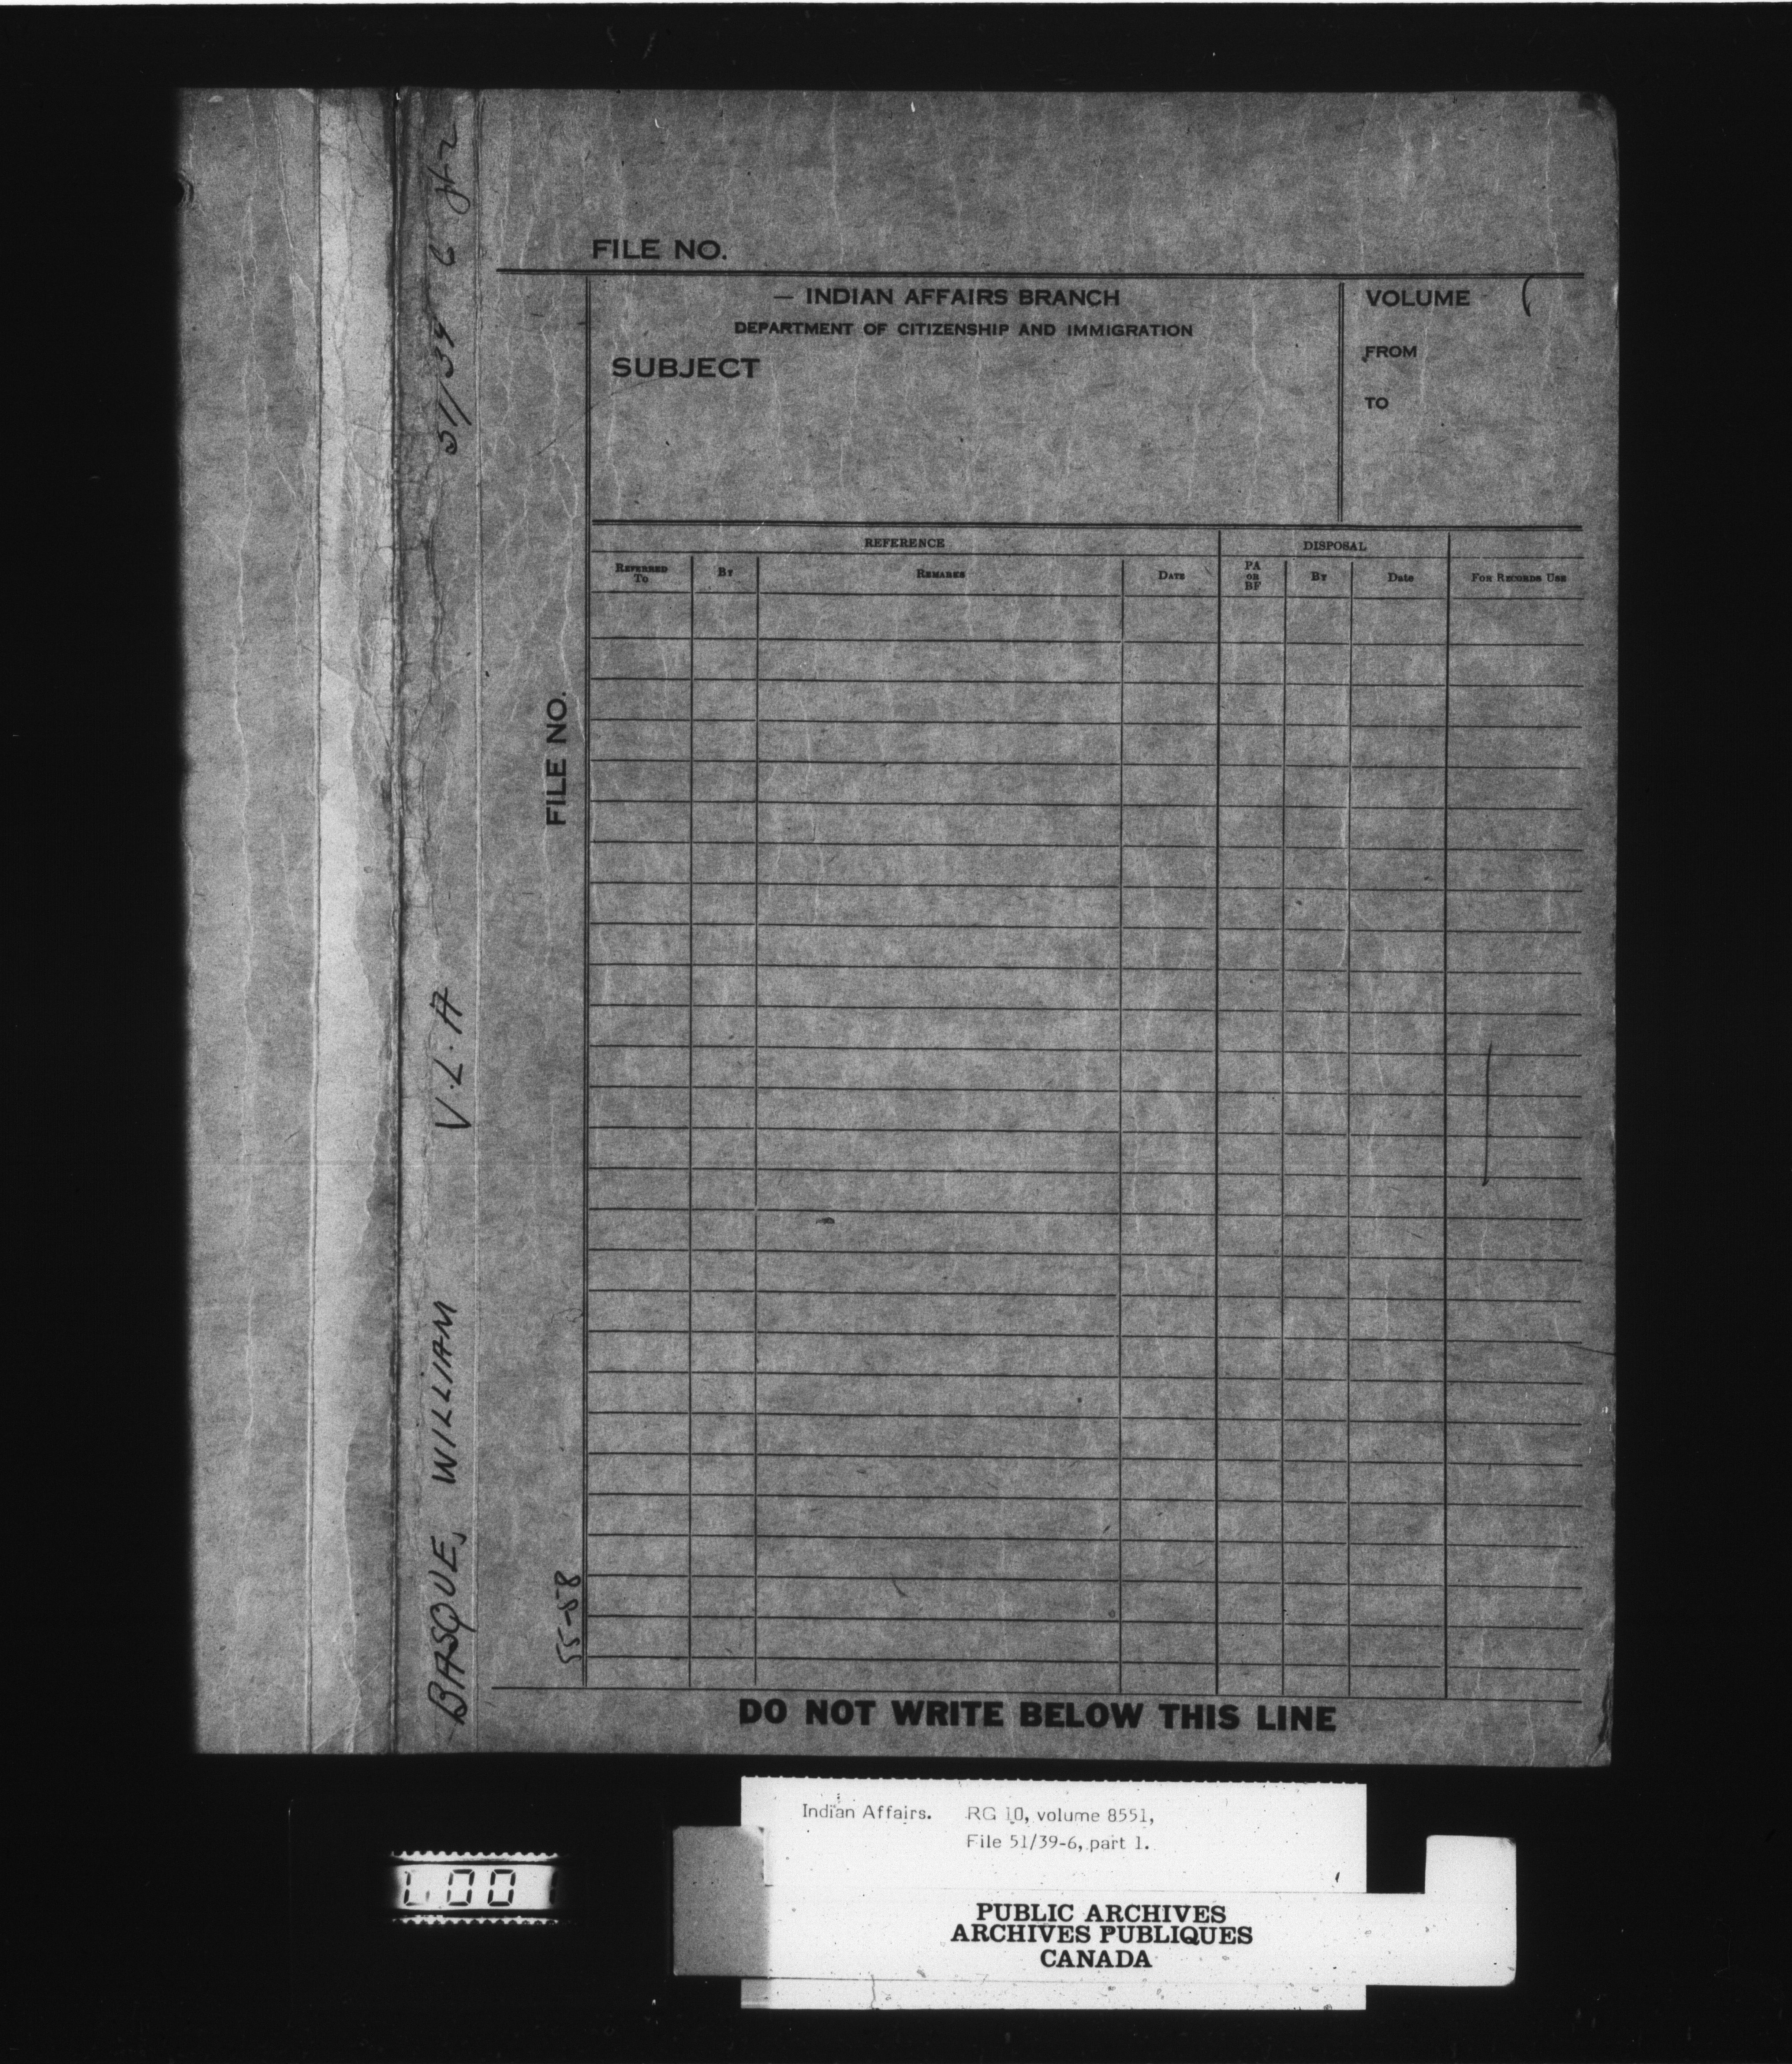 FILE NO.
— INDIAN AFFAIRS BRANCH
DEPARTMENT OF CITIZENSHIP AND IMMIGRATION
SUBJECT
VOLUME
FROM
TO
REFERENCE
DISPOSAL
REFERRED TO
BY
REMARKS
DATE
PA OR BF
BY
Date
FOR RECORDS USE
FILE NO.
BASQUE, WILLIAM V.L.A 51/39 6
55-58
DO NOT WRITE BELOW THIS LINE
Indian Affairs. RG 10, volume 8551,
File 51/39-6, part 1.
PUBLIC ARCHIVES
ARCHIVES PUBLIQUES
CANADA